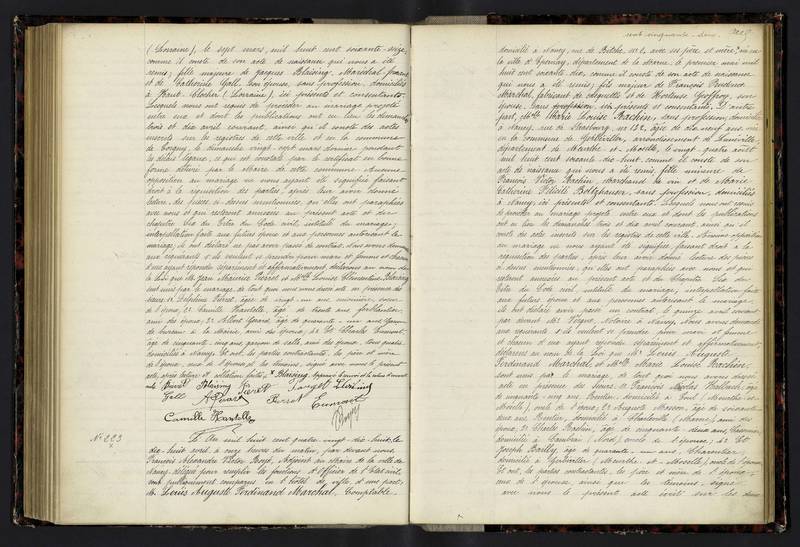 (Lorraine), le sept mars, mil huit cent soixante-seize
comme il conste de son acte de naissance qui nous a été
remis; fille majeure de Jacques Blaising, Maréchal ferrant
et de Catherine Gall, son épouse, sans profession, domiciliés
à Haut-Clocher (Lorraine), ici présents et consentants.
Lesquels nous ont requis de procéder au mariage projeté
entre eux et dont les publications ont eu lieu les dimanches
trois et dix avril courant, ainsi qu'il conste des actes
inscrits sur les registres de cette ville et en la commune
de Longwy, le dimanche vingt-sept mars dernier pendant
les délais légaux, ce qui est constaté par le certificat en bonne
forme délivré par le Maire de cette commune. Aucune
opposition au mariage ne nous ayant été signifiée faisant
droit à la réquisition des parties, après leur avoir donné
lecture des pièces ci-dessus mentionnées, qu'elles ont paraphées
avec nous et qui resteront annexées au présent acte et du
chapitre six du Titre du Code civil, intitulé du mariage,
interpellation faite aux futurs époux et aux personnes autorisant le
mariage, ils ont déclaré ne pas avoir passé de contrat. Nous avons demandé
aux requérants s'ils veulent se prendre pour mari et femme et chacun
d'eux ayant répondu séparément et affirmativement, déclarons au nom de
la Loi que Mr Jean Maurice Pierret et Mlle Louise Clémentine Blaising
sont unis par le mariage, de tout quoi nous avons dressé acte en présence des
sieurs
de l'époux, 2° Camille Hantelle, âgé de trente ans
ami des époux; 3° Albert Girard, âgé de quarante-un ans
de bureau à la Mairie, ami des époux, 4° et Charles Eumont,
âgé de cinquante-cinq ans, garçon de salle, ami des époux, tous quatre
domiciliés à Nancy. Et ont, les parties contractantes, les père et mère
de l'épouse, ceux de l'époux et les témoins, signé avec nous le présent
acte, après lecture
Blaising Pierret
Gall A. Girard Pierret Eumont
Camille Hantelle
N° 223
L'An mil huit cent quatre-vingt-dix-huit, le
dix-huit avril, à onze heures du matin, par devant nous
François Alexandre Victor Boyé, Adjoint au Maire de la ville de
Nancy délégué pour remplir les fonctions d'Officier de l'état civil,
sont publiquement comparus en l'hôtel de ville, d'une part,
Mr Louis Auguste Ferdinand Marchal, Comptable,
cent cinquante-deux.
domicilié à Nancy, rue de Bitche, n° 2, avec ses père et mère, né en
la ville d'Epernay, département de la Marne, le premier mai mil
huit cent soixante-dix, comme il conste de son acte de naissance
qui nous a été remis; fils majeur de François Prudence
Marchal, fabricant de casquettes et de Hortense Geoffroy, son
épouse, sans profession, ici présents et consentants. D'autre
part, Mlle Marie Louise Rachin, sans profession, domiciliée
à Nancy, rue de Strasbourg, n° 132, âgée de dix-neuf ans, née
en la commune de Gerbéviller, arrondissement de Lunéville,
département de Meurthe-et-Moselle, le vingt-quatre août
mil huit cent soixante-dix-huit, comme il conste de son
acte de naissance qui nous a été remis, fille mineure de
François Victor Rachin, Marchand de vin et de Marie
Catherine Félicité Boltzhauser, sans profession, domiciliés
à Nancy, ici présents et consentants. Lesquels nous ont requis
de procéder au mariage projeté entre eux et dont les publications
ont eu lieu les dimanches trois et dix avril courant, ainsi qu'il
conste des actes inscrits sur les registres de cette ville. Aucune opposition
au mariage ne nous ayant été signifiée, faisant droit à la
réquisition des parties, après leur avoir donné lecture des pièces
ci-dessus mentionnées, qu'elles ont paraphées avec nous et qui
resteront annexées au présent acte et du Chapitre Six du
Titre du Code civil, intitulé du mariage, interpellation faite
aux futurs époux et aux personnes autorisant le mariage,
ils ont déclaré avoir passé un contrat, le quinze avril courant
par devant Me Notaire à Nancy. Nous avons demandé
aux requérants s'ils veulent se prendre pour mari et femme
et chacun d'eux ayant répondu séparément et affirmativement,
déclarons au nom de la Loi que Mr Louis Auguste
Ferdinand Marchal et Mlle Marie Louise Rachin,
sont unis par le mariage, de tout quoi nous avons dressé
acte en présence des sieurs 1° François Nicolas
de quarante-cinq ans, domicilié à Toul (Meurthe-et-
Moselle), oncle de l'époux; 2° Auguste Masson, âgé de soixante-
deux ans, Rentier, domicilié à (Marne), ami des
époux; 3° Charles Rachin, âgé de cinquante-deux ans,
domicilié à Cambrai (Nord), oncle de l'épouse; 4° Et
Joseph Bailly, âgé de quarante-un ans, Charcutier,
domicilié à Gerbéviller (Meurthe-et-Moselle), oncle de l'épouse.
Et ont, les parties contractantes, les père et mère de l'époux,
ceux de l'épouse, ainsi que les témoins, signé
avec nous le présent acte écrit sur les deux